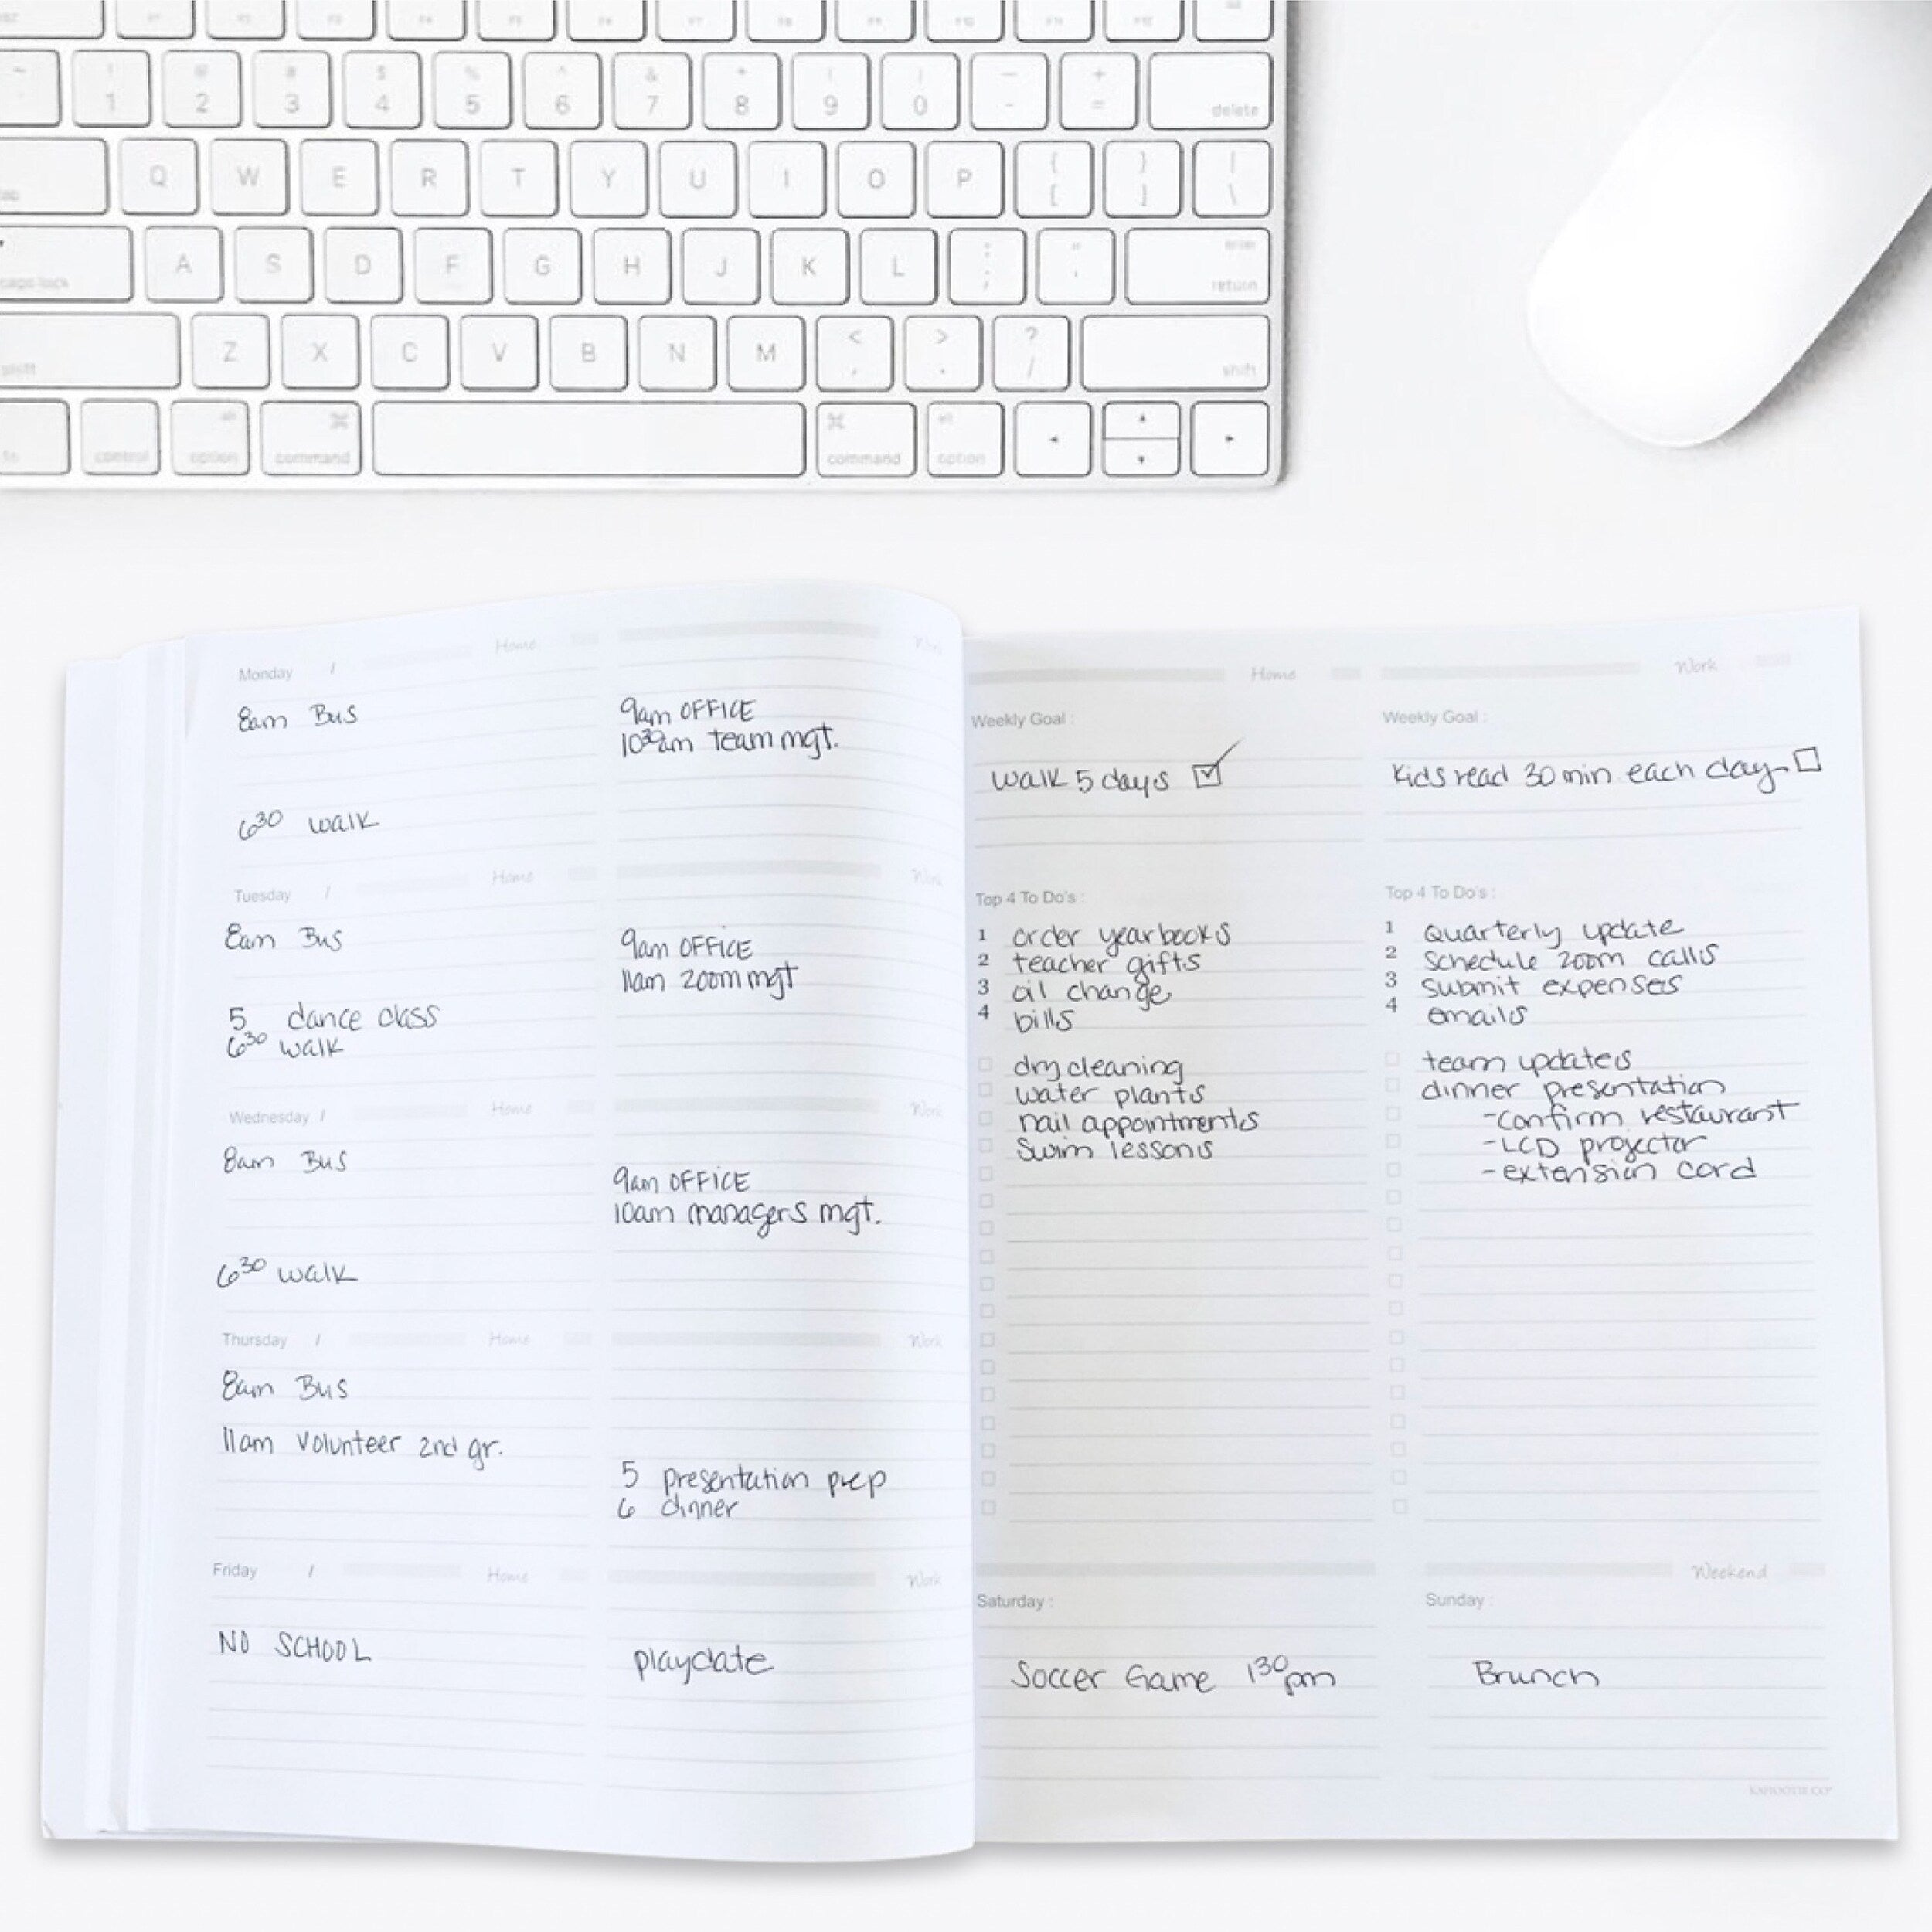 ~
! @ # $ % ^ & * ( ) — +
1 2 3 4 5 6 7 8 9 0 - = delete
Q W E R T Y U I O P { [ } ] | \
caps lock A S D F G H J K L : ; " ' enter return
shift Z X C V B N M < , > . ? / shift
fn control alt option ⌘ command ⌘ command alt option
Monday / Home Work
8am Bus
9am OFFICE
10³⁰am team mgt.
6³⁰ walk
Tuesday / Home Work
8am Bus
9am OFFICE
11am zoom mgt
5 dance class
6³⁰ walk
Wednesday / Home Work
8am Bus
9am OFFICE
10am managers mgt.
6³⁰ walk
Thursday / Home Work
8am Bus
11am Volunteer 2nd gr.
5 presentation prep
6 dinner
Friday / Home Work
NO SCHOOL
playdate
Home
Weekly Goal :
walk 5 days
Top 4 To Do's :
1 order yearbooks
2 teacher gifts
3 oil change
4 bills
dry cleaning
water plants
nail appointments
swim lessons
Work
Weekly Goal :
Kids read 30 min each day
Top 4 To Do's :
1 quarterly update
2 schedule zoom calls
3 submit expenses
4 emails
team updates
dinner presentation
-confirm restaurant
-LCD projector
-extension cord
Weekend
Saturday :
Soccer Game 1³⁰pm
Sunday :
Brunch